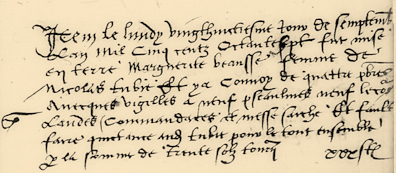 Item le lundy vingthuictiesme Jour de septembre
Lan mil Cinq centz Octante sept fut mise
en terre Marguerite femme de
Nicolas Et ya Convoy de quattre pbres
Auecques vigilles a neuf pseaulmes neuf lecons
Laudes Commandaces et messe Et fault
faire quictance aud pour le tout ensemble
p la somme de Trente solz tourn xxx s t